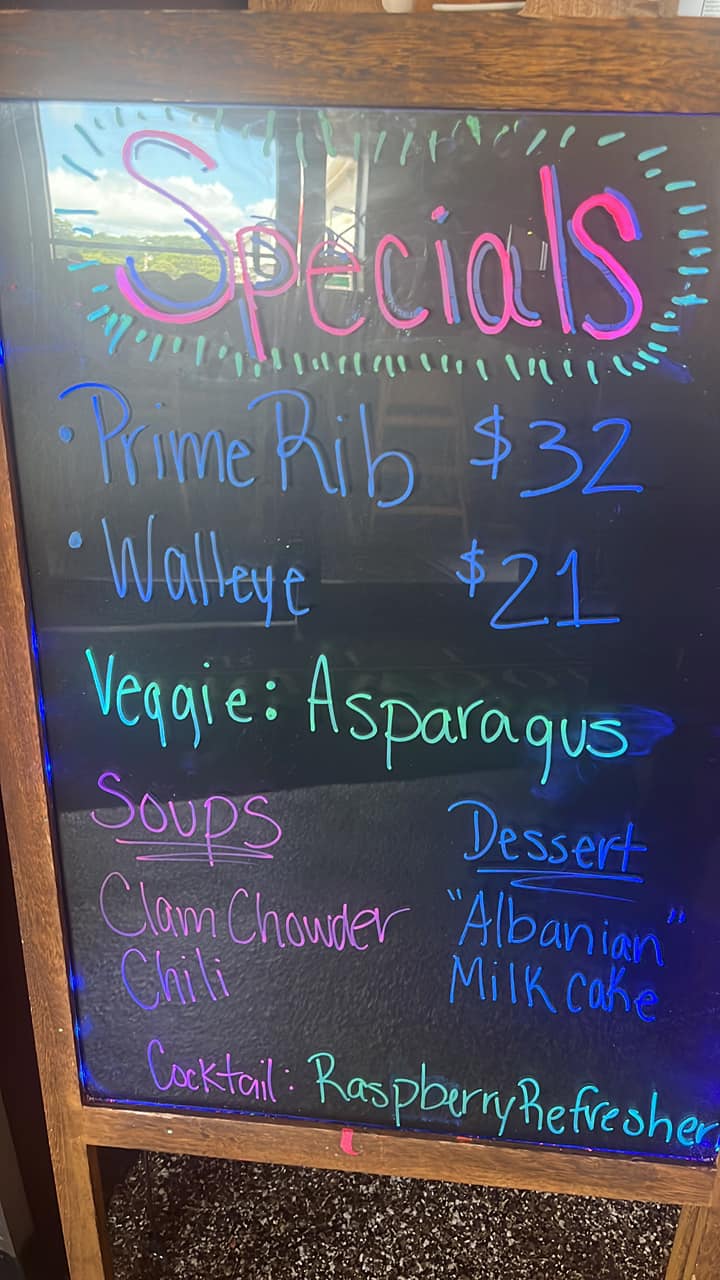 Specials
• Prime Rib $32
• Walleye $21
Veggie: Asparagus
Soups
Clam Chowder
Chili
Dessert
"Albanian"
Milk cake
Cocktail: Raspberry Refresher